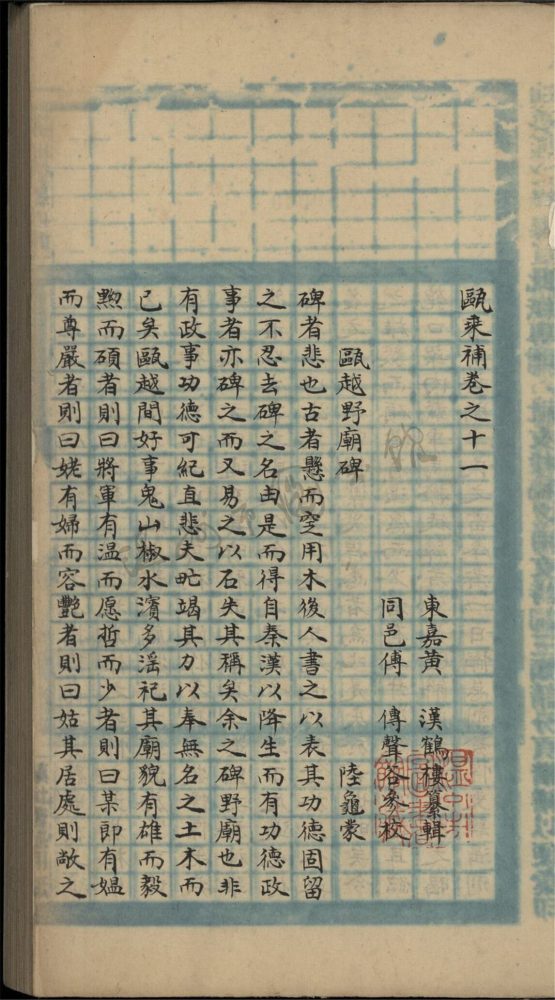 甌乘補卷之十一
東嘉黃　漢鶴樓纂輯
同邑傅　傳聲谷參校
甌越野廟碑　陸龜蒙
碑者悲也古者懸而窆用木後人書之以表其功德因留
之不忍去碑之名由是而得自秦漢以降生而有功德政
事者亦碑之而又易之以石失其稱矣余之碑野廟也非
有政事功德可紀直悲夫甿竭其力以奉無名之土木而
已矣甌越間好事鬼山椒水濱多淫祀其廟貌有雄而毅
黝而碩者則曰將軍有溫而愿晢而少者則曰某郎有媼
而尊嚴者則曰姥有婦而容艷者則曰姑其居處則敞之